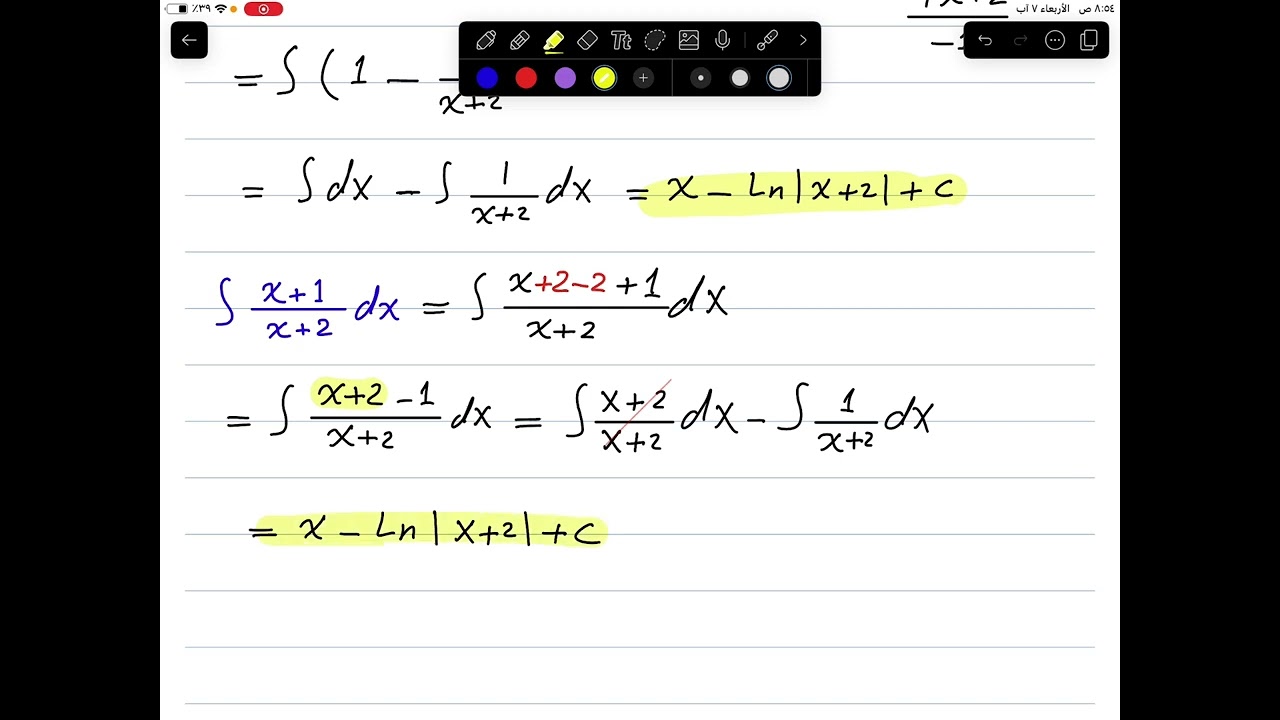 ٪٣٩ ٨:٥٤ ص الأربعاء ٧ آب
Tt
= ∫ ( 1 − x+2
= ∫ dx − ∫ 1/(x+2) dx = x − Ln|x+2| + C
∫ (x+1)/(x+2) dx = ∫ (x+2−2+1)/(x+2) dx
= ∫ (x+2−1)/(x+2) dx = ∫ (x+2)/(x+2) dx − ∫ 1/(x+2) dx
= x − Ln|x+2| + C